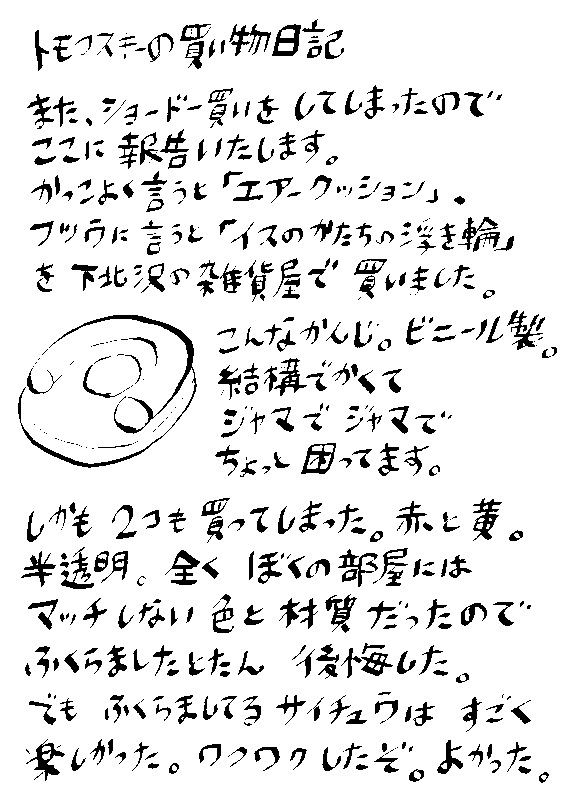 トモフスキーの買い物日記
また、ショードー買いをしてしまったので
ここに報告いたします。
かっこよく言うと「エアークッション」。
フツウに言うと「イスのかたちの浮き輪」
を下北沢の雑貨屋で買いました。
こんなかんじ。ビニール製。
結構でかくて
ジャマでジャマで
ちょっと困ってます。
しかも2コも買ってしまった。赤と黄。
半透明。全くぼくの部屋には
マッチしない色と材質だったので
ふくらましたとたん後悔した。
でもふくらましてるサイチュウはすごく
楽しかった。ワクワクしたぞ。よかった。